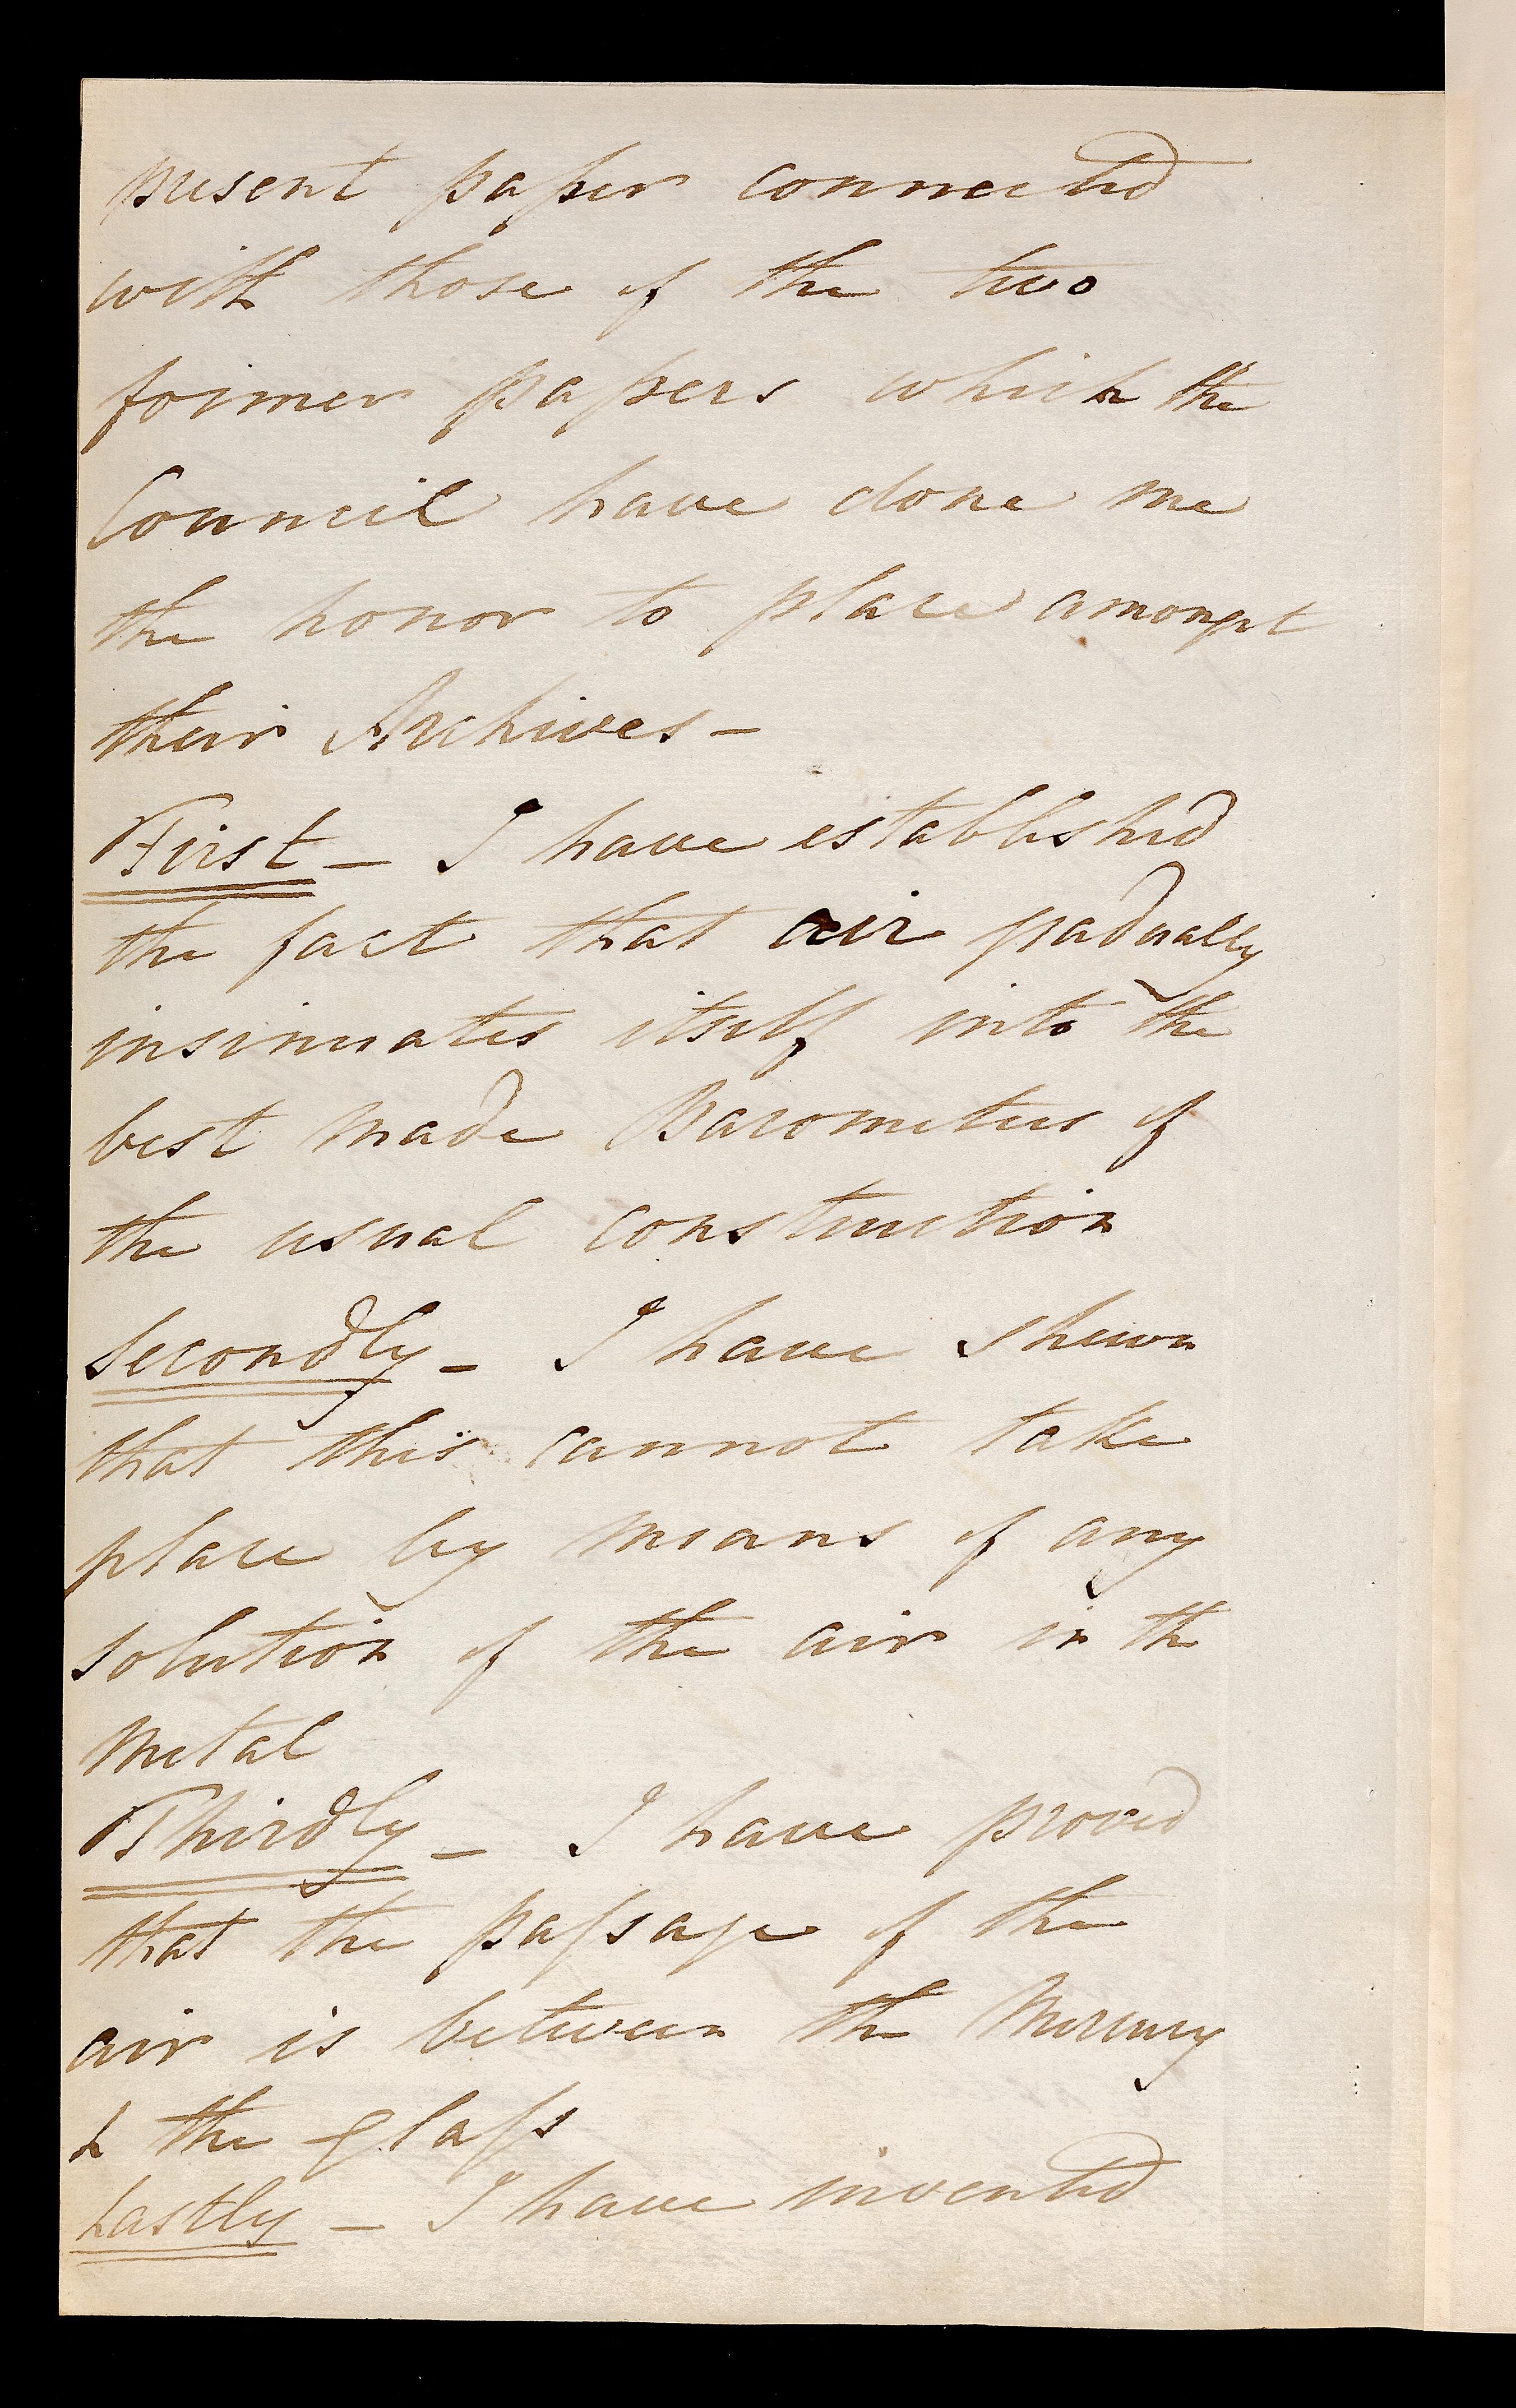 present paper connected
with those of the two
former papers which the
Council have done me
the honor to place amongst
their Archives –
First – I have established
the fact that air gradually
insinuates itself into the
best made Barometers of
the usual construction
Secondly – I have shewn
that this cannot take
place by means of any
solution of the air in the
metal
Thirdly – I have proved
that the paſsage of the
air is between the Mercury
& the glaſs
Lastly – I have invented